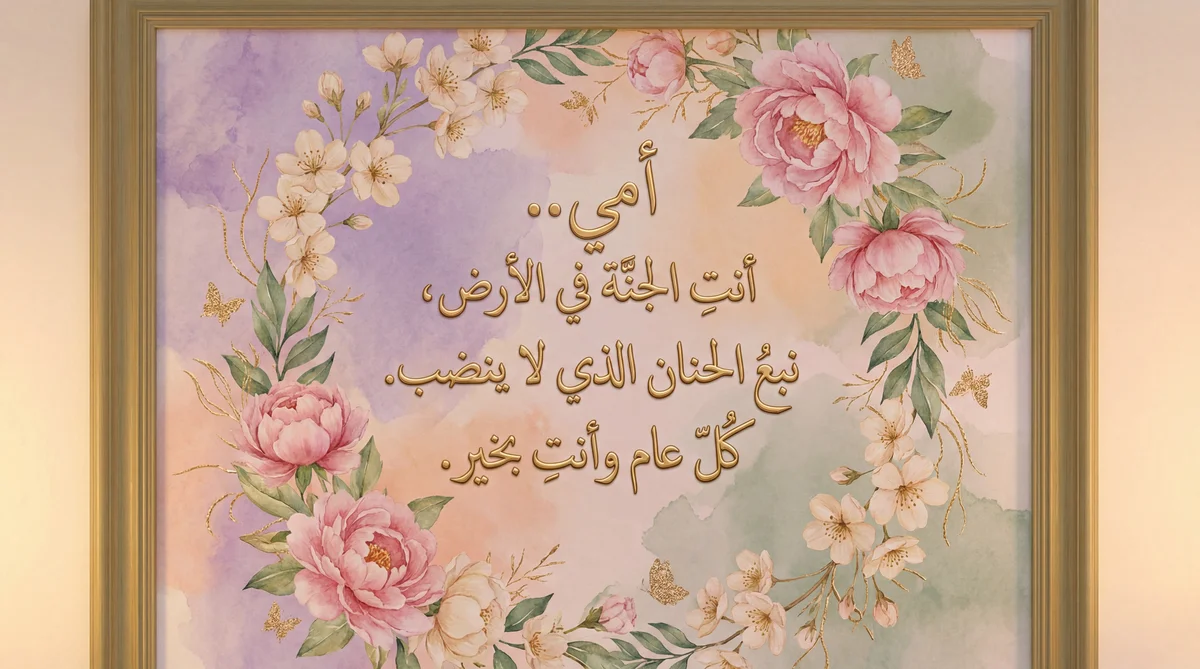 أمي..
أنتِ الجنَّة في الأرض،
نبعُ الحنان الذي لا ينضب.
كُلّ عام وأنتِ بخير.